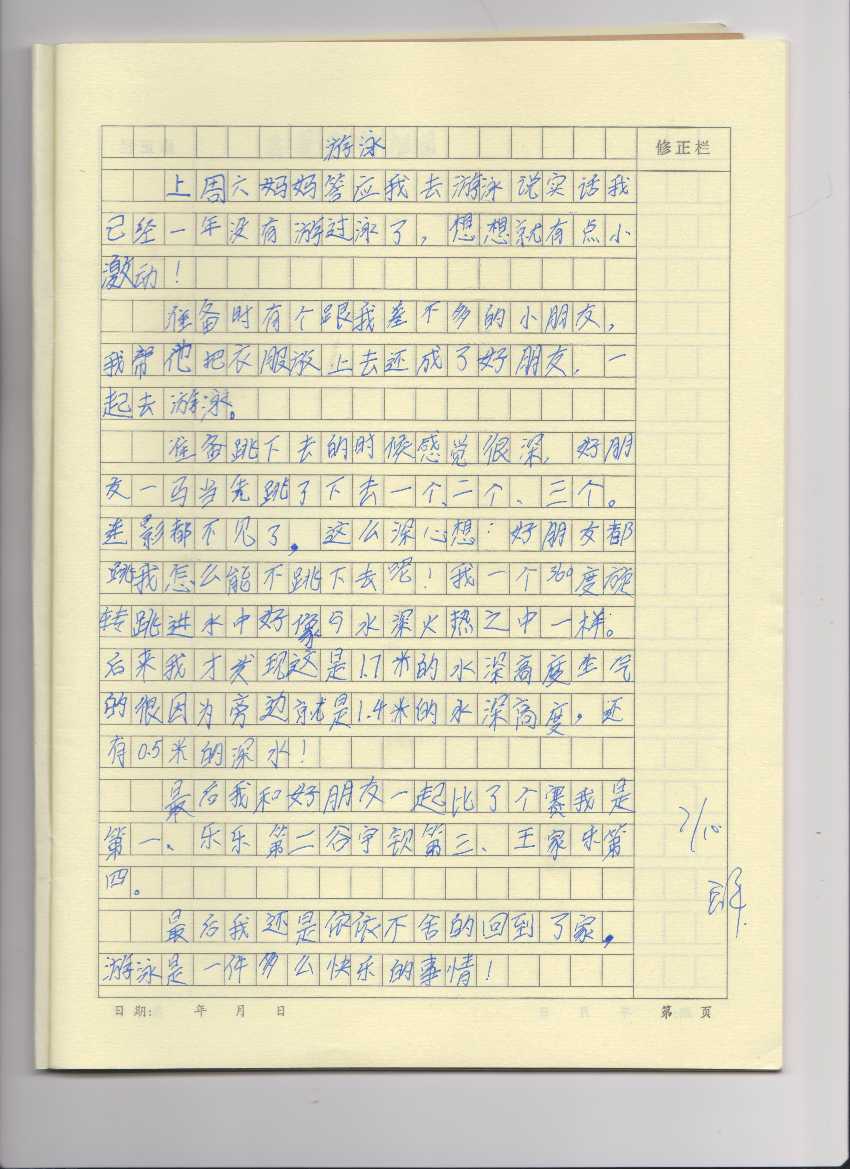 游泳
修正栏
上周六妈妈答应我去游泳说实话我
已经一年没有游过泳了，想想就有点小
激动！
准备时有个跟我差不多的小朋友，
我帮他把衣服放上去还成了好朋友，一
起去游泳。
准备跳下去的时候感觉很深，好朋
友一马当先跳了下去一个、二个、三个。
连影都不见了。这么深心想：好朋友都
跳我怎么能不跳下去呢！我一个360度旋
转跳进水中好像与水深火热之中一样。
后来我才发现这是1.7米的水深高度生气
的很因为旁边就是1.4米的水深高度，还
有0.5米的深水！
最后我和好朋友一起比了个赛我是
第一、乐乐第二谷宇钡第三、王家乐第
四。
最后我还是依依不舍的回到了家，
游泳是一件多么快乐的事情！
7/10
日期: 年 月 日 第 页